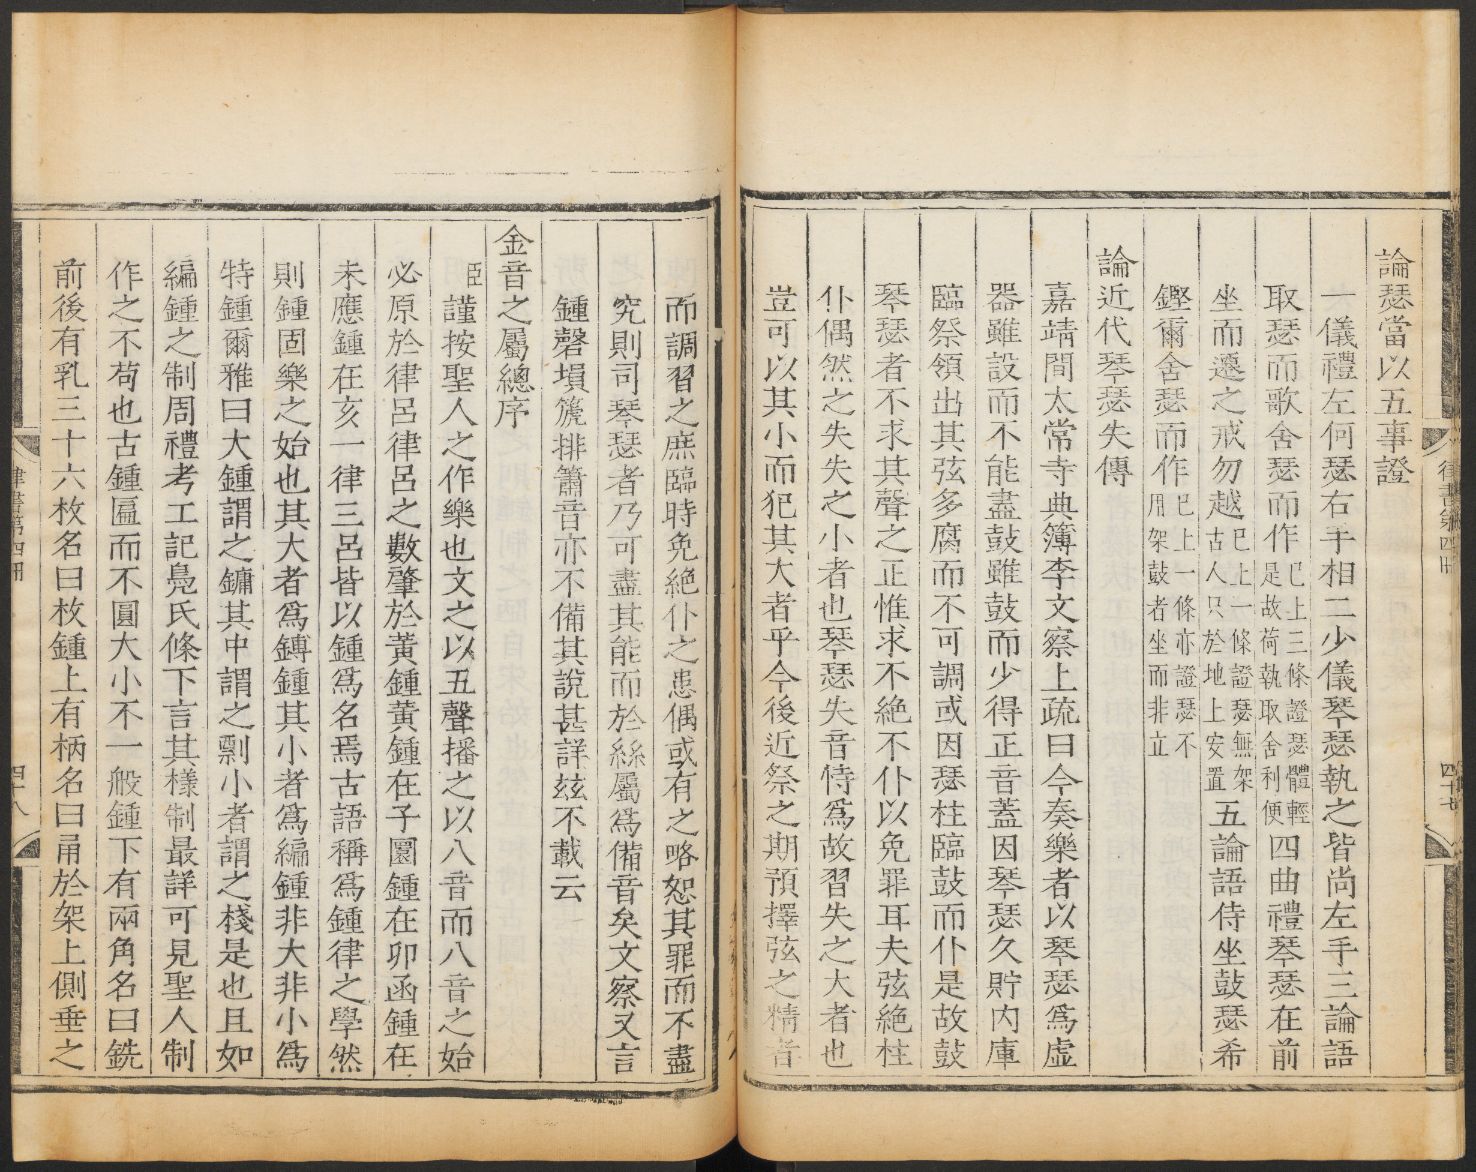 論瑟當以五事證
一儀禮左何瑟右手相二少儀琴瑟執之皆尚左手三論語
取瑟而歌舍瑟而作巳上三條證瑟體輕是故荷執取舍利便四曲禮琴瑟在前
坐而遷之戒勿越巳上一條證瑟無架古人只於地上安置五論語侍坐鼓瑟希
鏗爾舍瑟而作巳上一條亦證瑟不用架鼓者坐而非立
論近代琴瑟失傳
嘉靖間太常寺典簿李文察上疏曰今奏樂者以琴瑟爲虛
器雖設而不能盡鼓雖鼓而少得正音蓋因琴瑟久貯內庫
臨祭領出其弦多腐而不可調或因瑟柱臨鼓而仆是故鼓
琴瑟者不求其聲之正惟求不絶不仆以免罪耳夫弦絶柱
仆偶然之失失之小者也琴瑟失音侍爲故習失之大者也
豈可以其小而犯其大者乎今後近祭之期預擇弦之精者
律書第四冊
四十七
而調習之庶臨時免絶仆之患偶或有之略恕其罪而不盡
究則司琴瑟者乃可盡其能而於絲屬爲備音矣文察又言
鍾磬塤篪排簫音亦不備其說甚詳玆不載云
金音之屬總序
臣謹按聖人之作樂也文之以五聲播之以八音而八音之始
必原於律呂律呂之數肇於黃鍾黃鍾在子圜鍾在卯函鍾在
未應鍾在亥一律三呂皆以鍾爲名焉古語稱爲鍾律之學然
則鍾固樂之始也其大者爲鎛鍾其小者爲編鍾非大非小爲
特鍾爾雅曰大鍾謂之鏞其中謂之剽小者謂之棧是也且如
編鍾之制周禮考工記鳧氏條下言其樣制最詳可見聖人制
作之不苟也古鍾匾而不圓大小不一般鍾下有兩角名曰銑
前後有乳三十六枚名曰枚鍾上有柄名曰甬於架上側垂之
律書第四冊
四十八